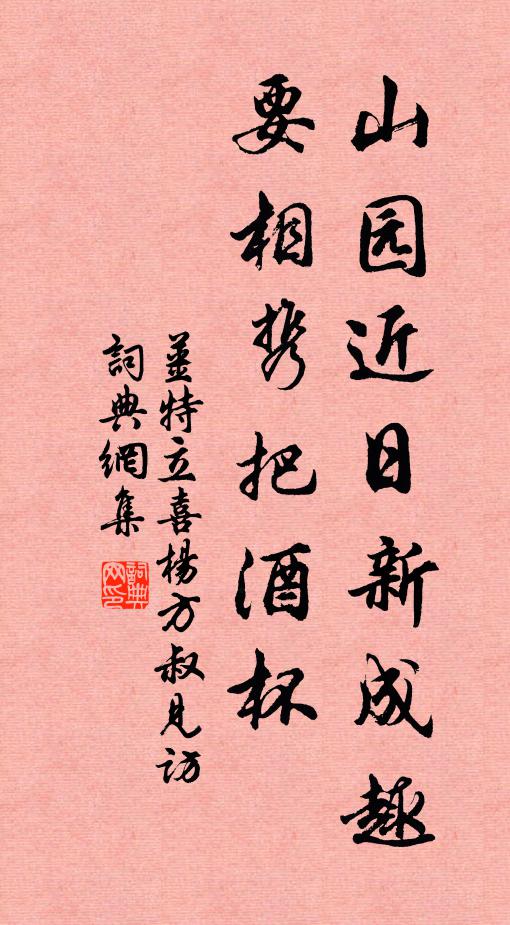 山园近日新成趣
要相携把酒杯
姜特立喜楊方叔见访
詞典網集
詞典网印